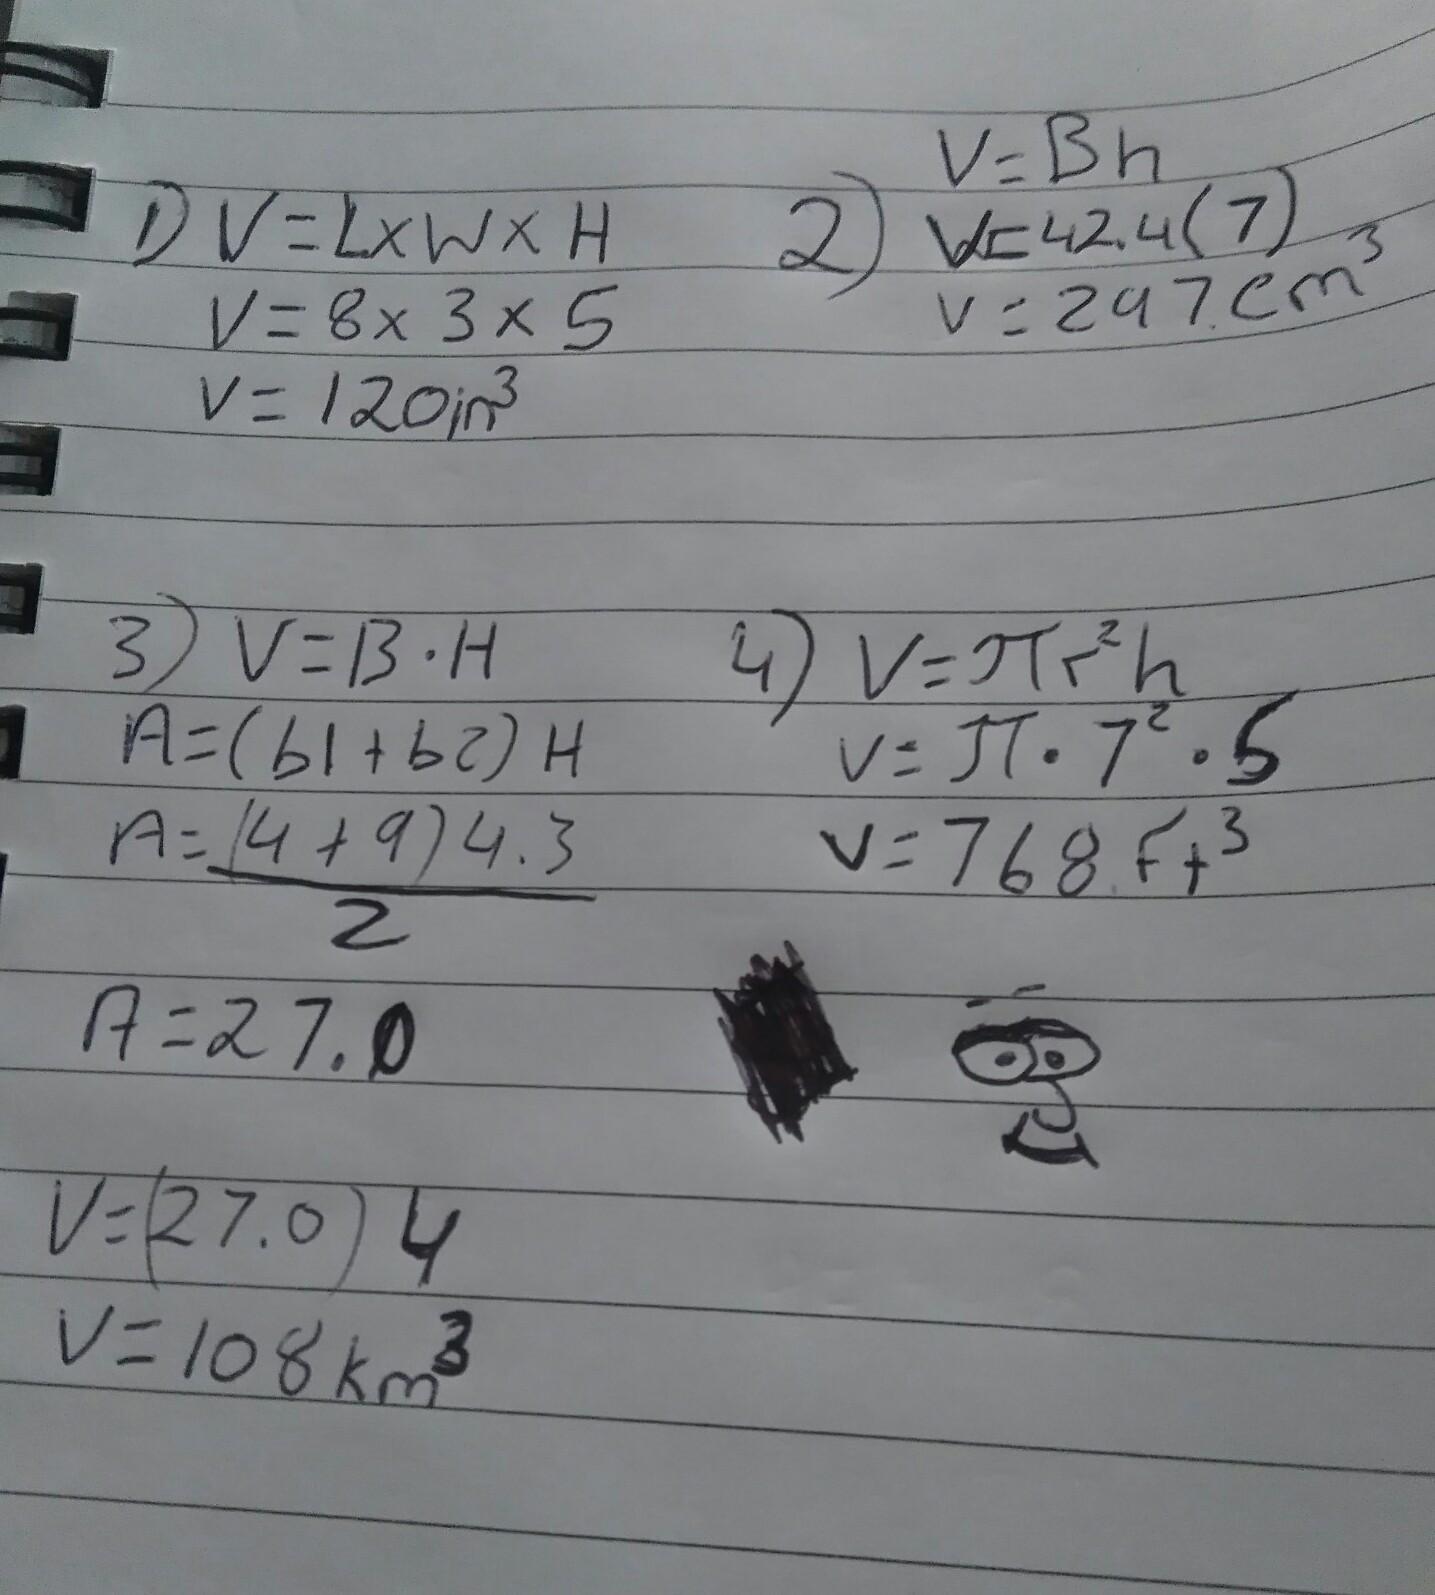 1) V=LxWxH
V=8x3x5
V=120in³
2) V=Bh
V=42.4(7)
V=297.cm³
3) V=B·H
A=(b1+b2)H
A=(4+9)4.3
2
A=27.0
V=(27.0)4
V=108km³
4) V=πr²h
V=π·7²·5
V=768.Ft³